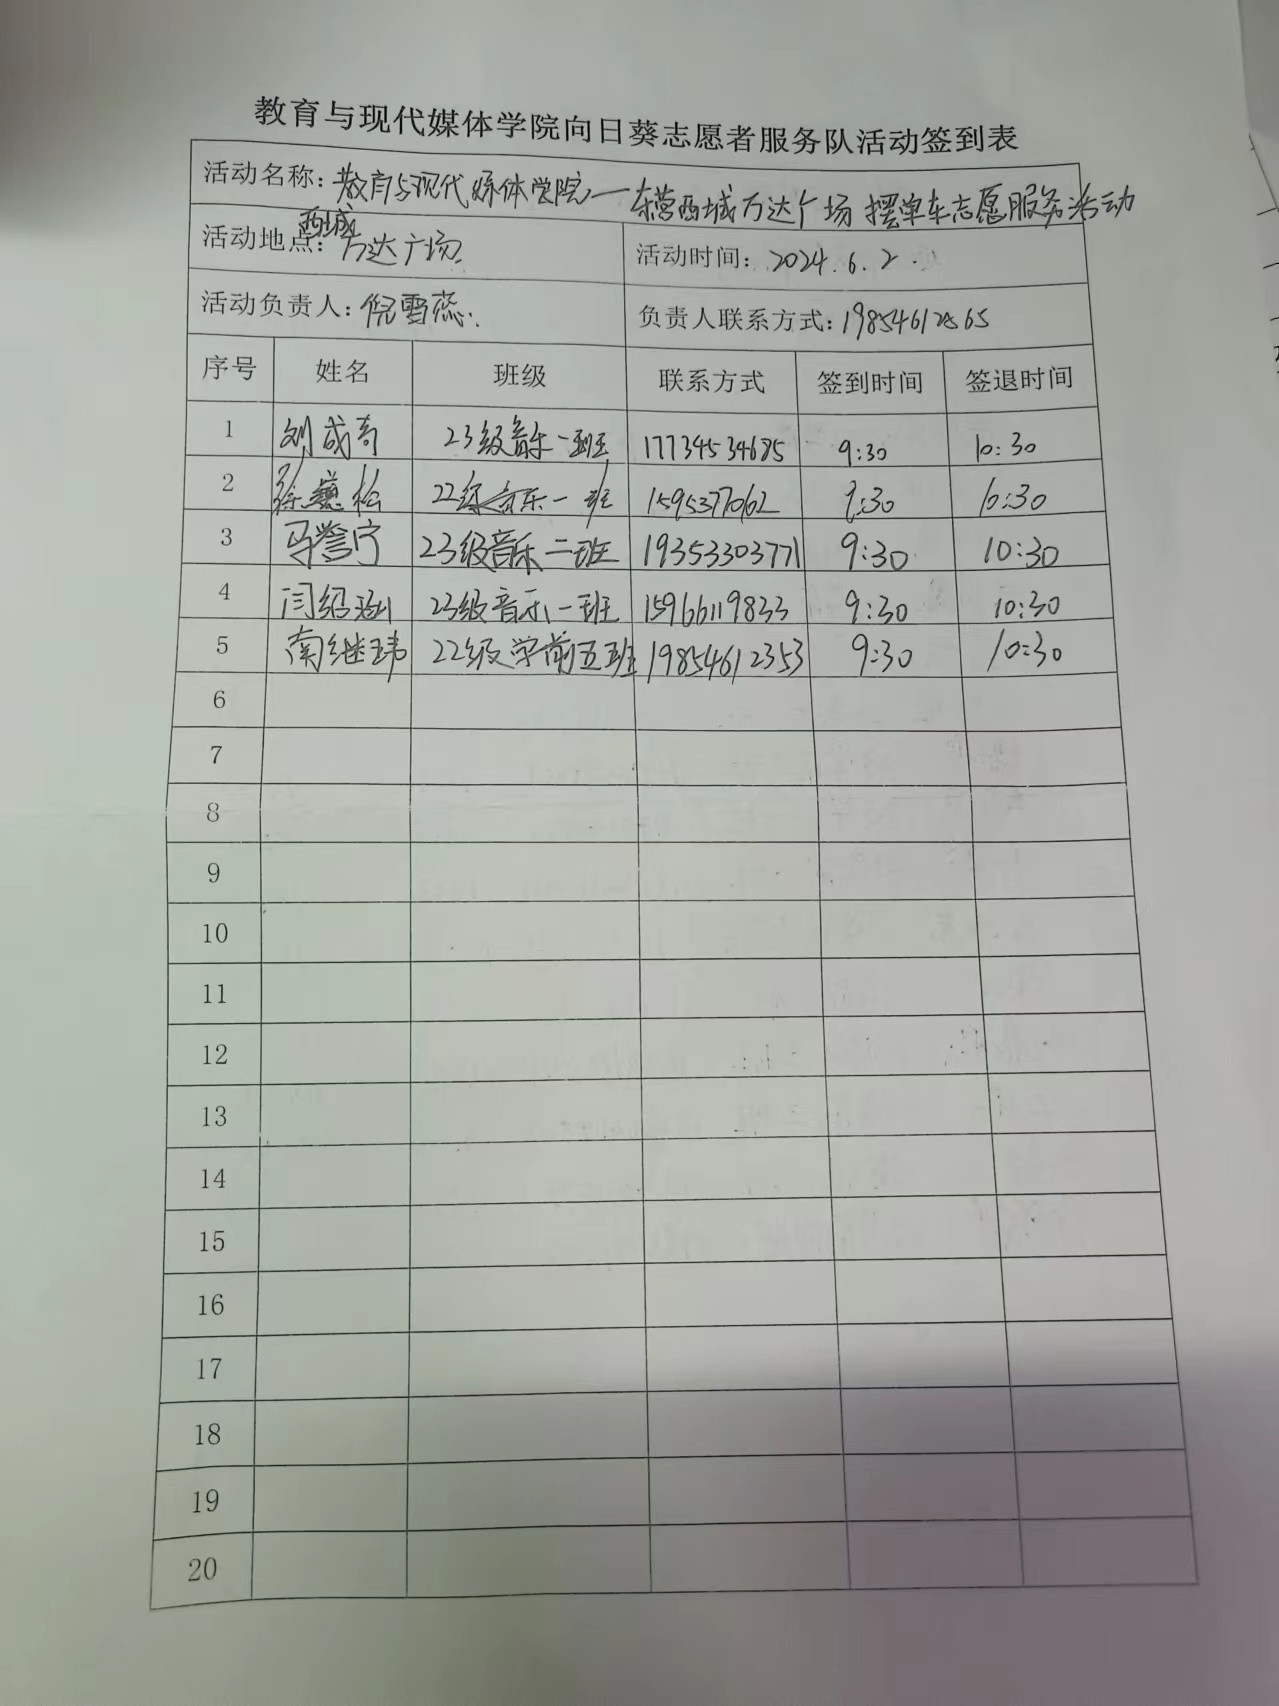 教育与现代媒体学院向日葵志愿者服务队活动签到表
活动名称：教育与现代媒体学院——东营西城万达广场摆单车志愿服务活动
活动地点：西城万达广场 活动时间：2024.6.2.
活动负责人：倪雪蕊 负责人联系方式：19854612865
序号 姓名 班级 联系方式 签到时间 签退时间
1 刘成奇 23级音乐一班 17734534685 9:30 10:30
2 徐艺松 22级音乐一班 1595377062 9:30 10:30
3 马誉宁 23级音乐二班 19353303771 9:30 10:30
4 闫绍涵 23级音乐一班 15966119833 9:30 10:30
5 南继玮 22级学前五班 19854612353 9:30 10:30
6
7
8
9
10
11
12
13
14
15
16
17
18
19
20